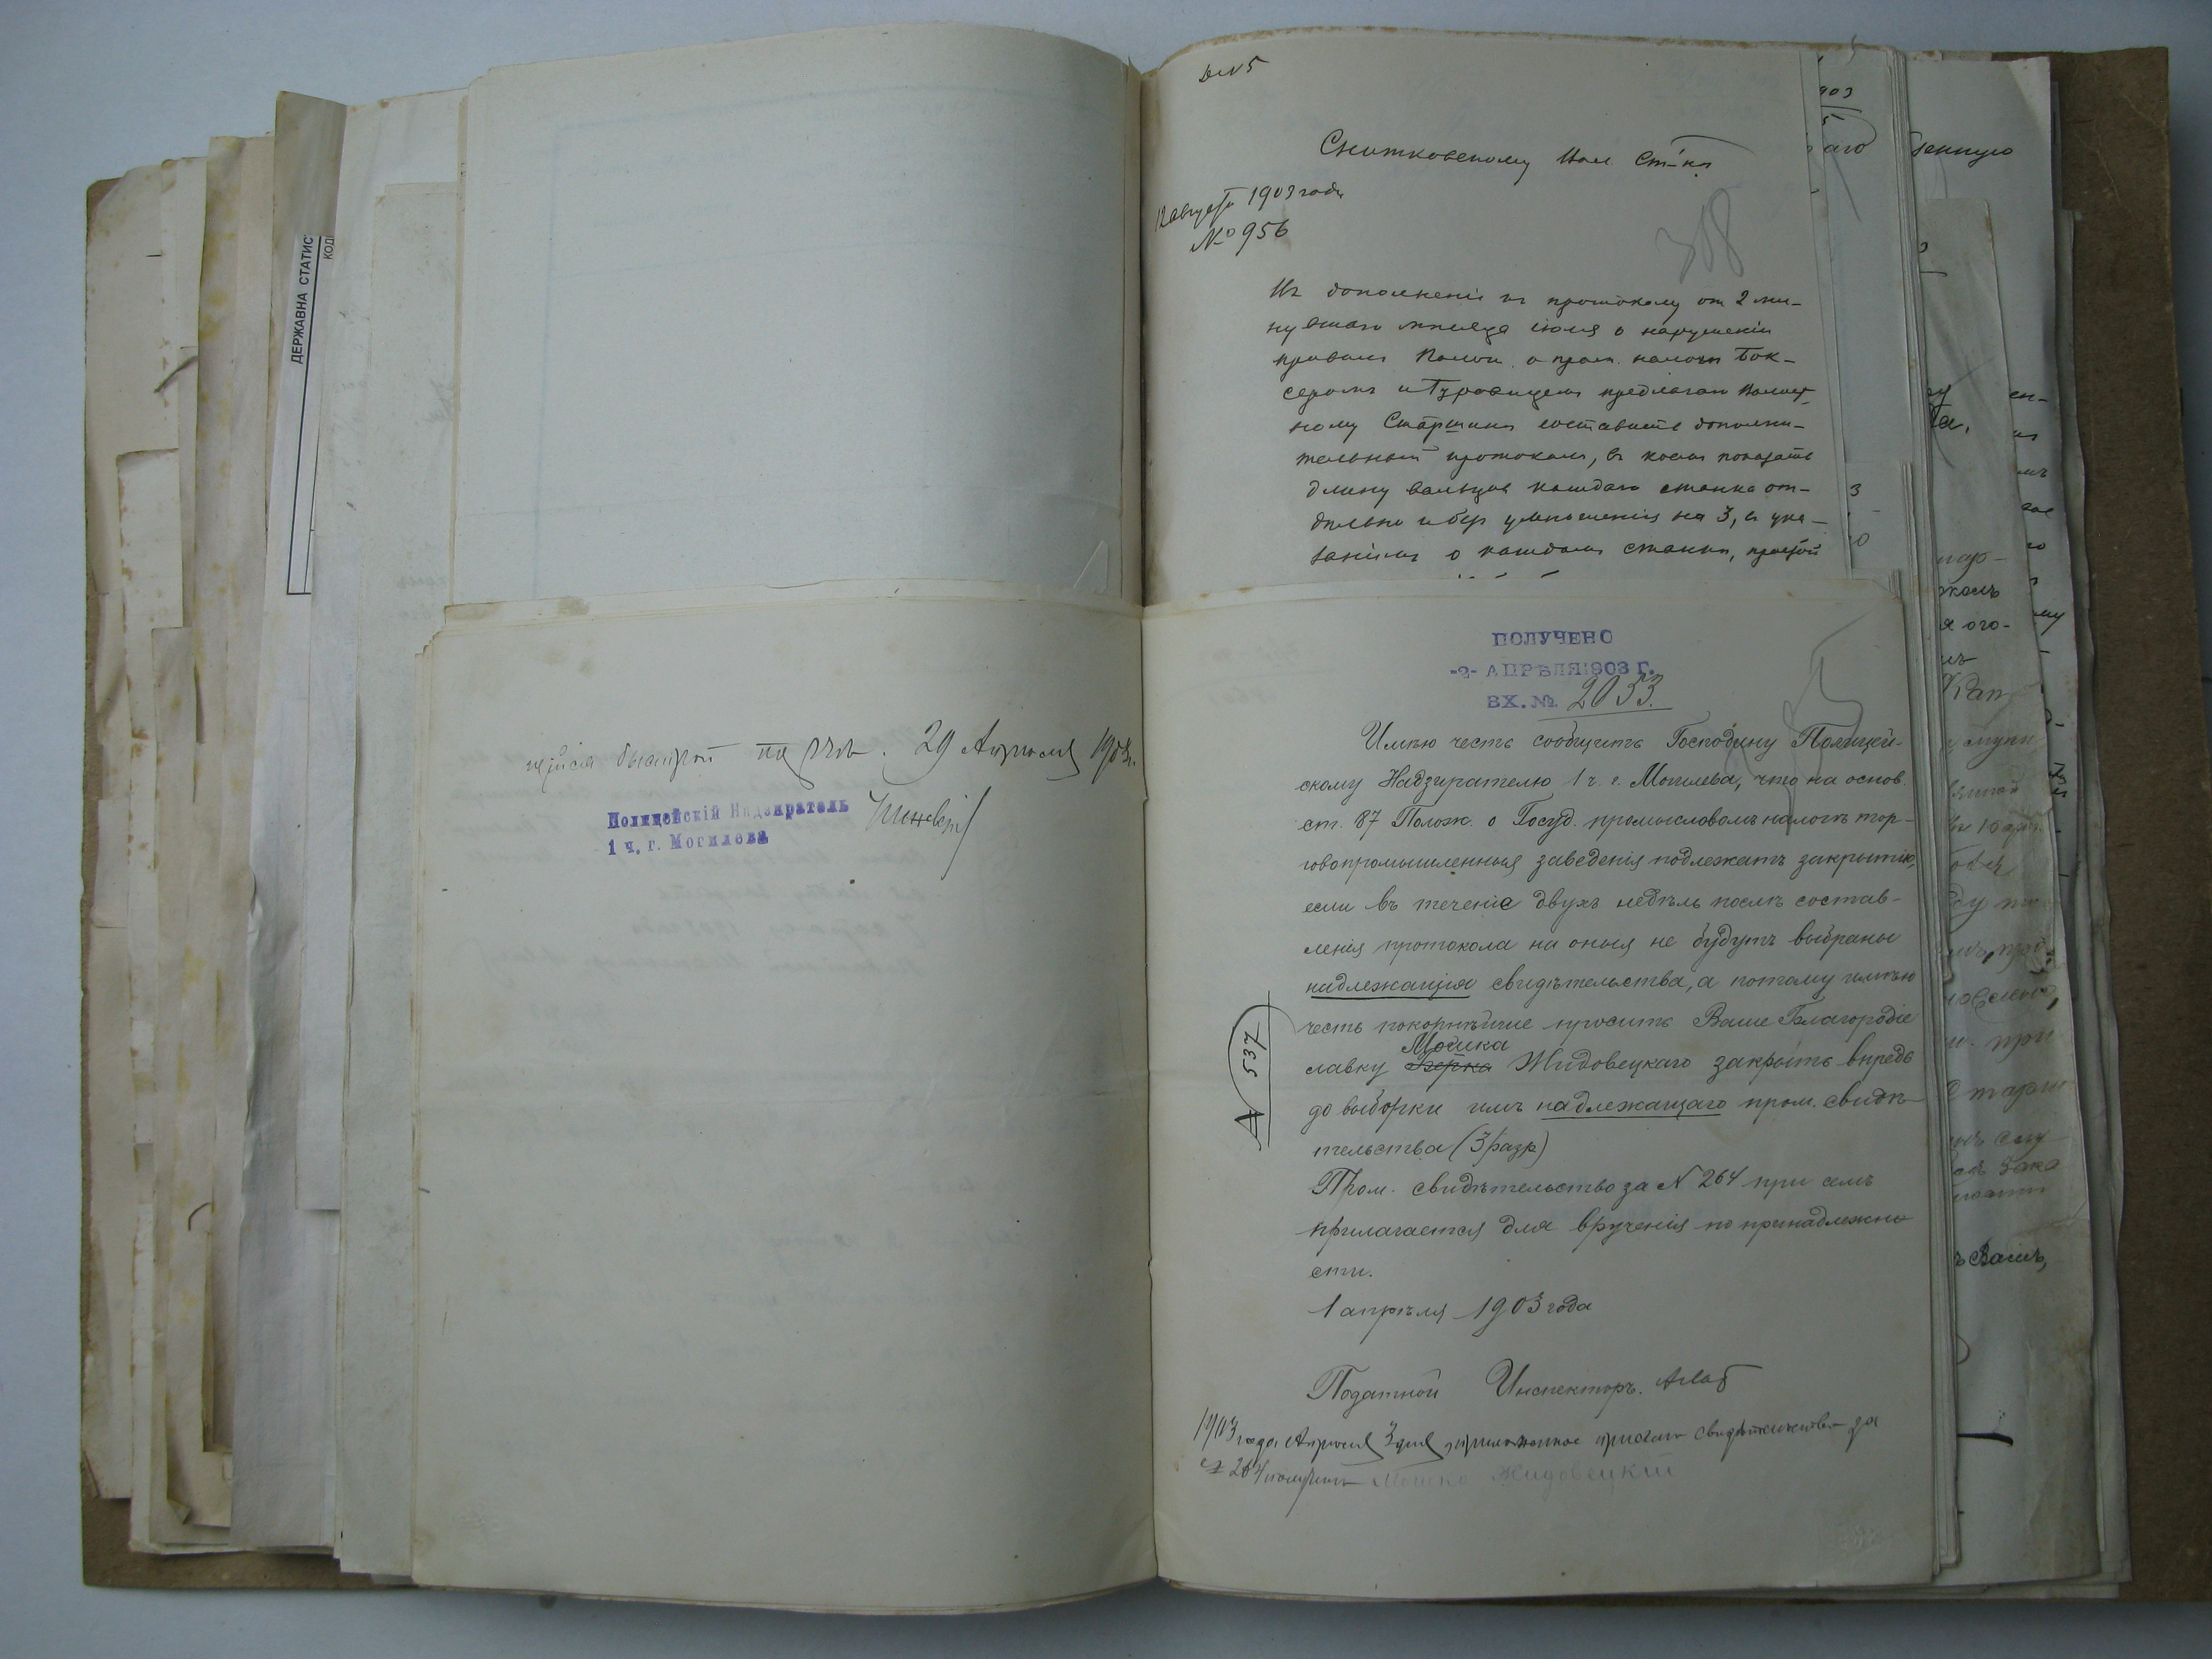 ДЕРЖАВНА СТАТИС
КОД
29 Апреля 1903 г.
Полицейскій Надзиратель
1 ч. г. Могилева
№ 5
Снитковскому Вол
12 августа 1903 года
№ 956
308
Въ дополненіе къ протоколу от 2 ми-
нувшаго месяца іюля о нарушеніи
правилъ Полож. о пром. налоге Бок-
серомъ и Гуровицемъ предлагаю Волост-
ному Старшине составить дополни-
тельный протоколъ, въ коемъ показать
длину вальцов каждаго станка от-
дельно и без уменьшенія на 3, съ ука-
заніемъ о каждомъ станке, простой
ПОЛУЧЕНО
-2- АПРѢЛЯ 1903 Г.
ВХ. № 2053.
Имѣю честь сообщить Господину Полицей-
скому Надзирателю 1 ч. г. Могилева, что на основ.
ст. 87 Полож. о Госуд. промысловомъ налогѣ тор-
говопромышленныя заведенія подлежатъ закрытію,
если въ теченіе двухъ недѣль послѣ состав-
ленія протокола на оныя не будутъ выбраны
надлежащія свидѣтельства, а потому имѣю
честь покорнѣйше просить Ваше Благородіе
Мошка
лавку Берка Жидовецкаго закрыть впредь
до выборки имъ надлежащаго пром. свидѣ-
тельства (3 разр)
Пром. свидѣтельство за N 264 при семъ
прилагается для врученія по принадлежно
сти.
1 апрѣля 1903 года
Податной Инспекторъ.
1903 года Апреля 3 дня приложенное при семъ свидѣтельство за
№ 264 получилъ Мошко Жидовецкій
537